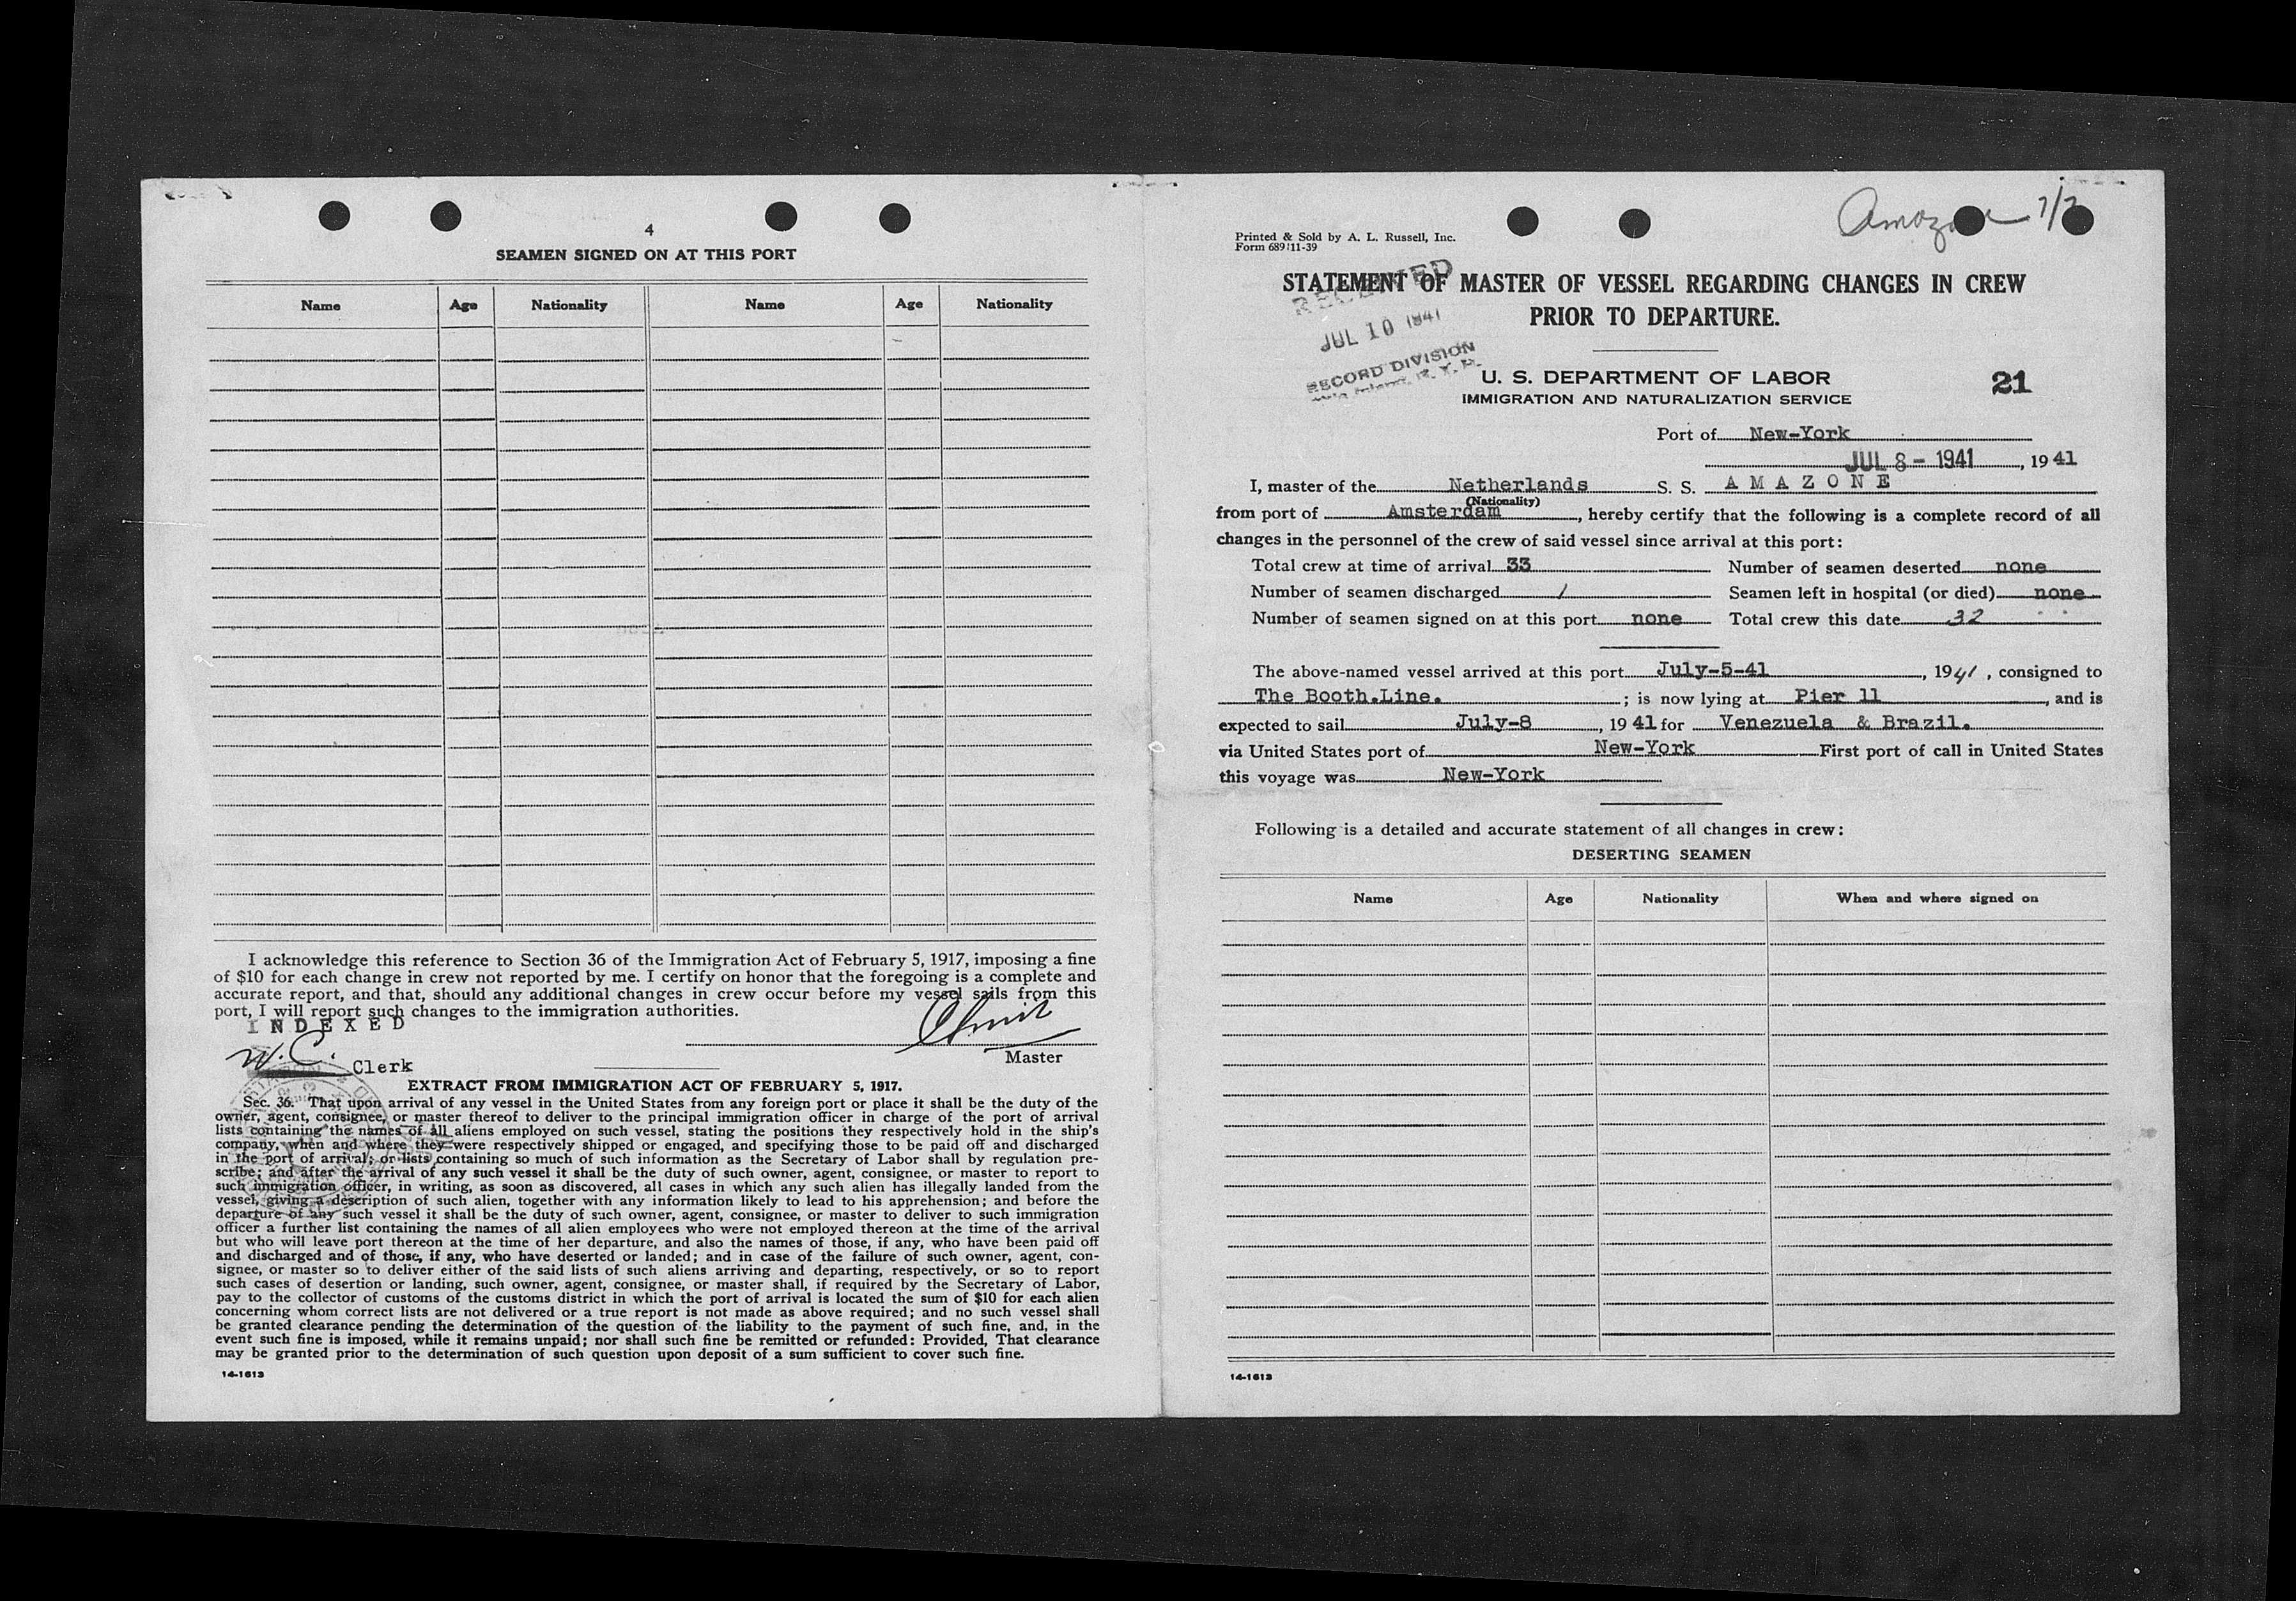 4
SEAMEN SIGNED ON AT THIS PORT
Name Age Nationality Name Age Nationality
I acknowledge this reference to Section 36 of the Immigration Act of February 5, 1917, imposing a fine
of $10 for each change in crew not reported by me. I certify on honor that the foregoing is a complete and
accurate report, and that, should any additional changes in crew occur before my vessel sails from this
port, I will report such changes to the immigration authorities.
INDEXED
W.C. Clerk
Master
EXTRACT FROM IMMIGRATION ACT OF FEBRUARY 5, 1917.
Sec. 36. That upon arrival of any vessel in the United States from any foreign port or place it shall be the duty of the
owner, agent, consignee, or master thereof to deliver to the principal immigration officer in charge of the port of arrival
lists containing the names of all aliens employed on such vessel, stating the positions they respectively hold in the ship's
company, when and where they were respectively shipped or engaged, and specifying those to be paid off and discharged
in the port of arrival; or lists containing so much of such information as the Secretary of Labor shall by regulation pre-
scribe; and after the arrival of any such vessel it shall be the duty of such owner, agent, consignee, or master to report to
such immigration officer, in writing, as soon as discovered, all cases in which any such alien has illegally landed from the
vessel, giving a description of such alien, together with any information likely to lead to his apprehension; and before the
departure of any such vessel it shall be the duty of such owner, agent, consignee, or master to deliver to such immigration
officer a further list containing the names of all alien employees who were not employed thereon at the time of the arrival
but who will leave port thereon at the time of her departure, and also the names of those, if any, who have been paid off
and discharged and of those, if any, who have deserted or landed; and in case of the failure of such owner, agent, con-
signee, or master so to deliver either of the said lists of such aliens arriving and departing, respectively, or so to report
such cases of desertion or landing, such owner, agent, consignee, or master shall, if required by the Secretary of Labor,
pay to the collector of customs of the customs district in which the port of arrival is located the sum of $10 for each alien
concerning whom correct lists are not delivered or a true report is not made as above required; and no such vessel shall
be granted clearance pending the determination of the question of the liability to the payment of such fine, and, in the
event such fine is imposed, while it remains unpaid; nor shall such fine be remitted or refunded: Provided, That clearance
may be granted prior to the determination of such question upon deposit of a sum sufficient to cover such fine.
14-1613
Printed & Sold by A. L. Russell, Inc.
Form 689 11-39
STATEMENT OF MASTER OF VESSEL REGARDING CHANGES IN CREW
PRIOR TO DEPARTURE.
RECEIVED
JUL 10 1941
RECORD DIVISION
U. S. DEPARTMENT OF LABOR
IMMIGRATION AND NATURALIZATION SERVICE
21
Port of New-York
JUL 8 - 1941, 1941
I, master of the Netherlands S. S. AMAZONE
(Nationality)
from port of Amsterdam, hereby certify that the following is a complete record of all
changes in the personnel of the crew of said vessel since arrival at this port:
Total crew at time of arrival 33 Number of seamen deserted none
Number of seamen discharged 1 Seamen left in hospital (or died) none
Number of seamen signed on at this port none Total crew this date 32
The above-named vessel arrived at this port July-5-41, 1941, consigned to
The Booth.Line. ; is now lying at Pier 11, and is
expected to sail July-8, 19 41 for Venezuela & Brazil.
via United States port of New-York First port of call in United States
this voyage was New-York
Following is a detailed and accurate statement of all changes in crew:
DESERTING SEAMEN
Name Age Nationality When and where signed on
14-1613